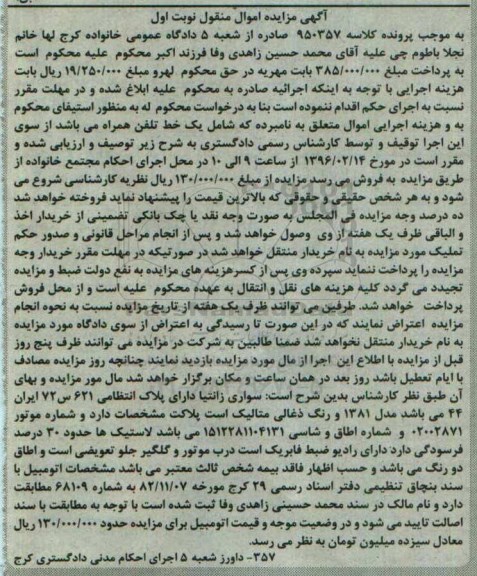 آگهی مزایده اموال منقول نوبت اول
به موجب پرونده کلاسه ۹۵۰۳۵۷ صادره از شعبه ۵ دادگاه عمومی خانواده کرج لها خانم
نجلا باطوم چی علیه آقای محمد حسین زاهدی وفا فرزند اکبر محکوم علیه محکوم است
به پرداخت مبلغ ۳۸۵/۰۰۰/۰۰۰ بابت مهریه در حق محکوم لهرو مبلغ ۱۹/۲۵۰/۰۰۰ ریال بابت
هزینه اجرایی با توجه به اینکه اجرائیه صادره به محکوم علیه ابلاغ شده و در مهلت مقرر
نسبت به اجرای حکم اقدام ننموده است بنا به درخواست محکوم له به منظور استیفای محکوم
به و هزینه اجرایی اموال متعلق به نامبرده که شامل یک خط تلفن همراه می باشد از سوی
این اجرا توقیف و توسط کارشناس رسمی دادگستری به شرح زیر توصیف و ارزیابی شده و
مقرر است در مورخ ۱۳۹۶/۰۲/۱۴ از ساعت ۹ الی ۱۰ در محل اجرای احکام مجتمع خانواده از
طریق مزایده به فروش می رسد مزایده از مبلغ ۱۳۰/۰۰۰/۰۰۰ ریال نظریه کارشناسی شروع می
شود و به هر شخص حقیقی و حقوقی که بالاترین قیمت را پیشنهاد نماید فروخته خواهد شد
ده درصد وجه مزایده فی المجلس به صورت وجه نقد یا چک بانکی تضمینی از خریدار اخذ
و الباقی ظرف یک هفته از وی وصول خواهد شد و پس از انجام مراحل قانونی و صدور حکم
تملیک مورد مزایده به نام خریدار منتقل خواهد شد در صورتیکه در مهلت مقرر خریدار وجه
مزایده را پرداخت ننماید سپرده وی پس از کسر هزینه های مزایده به نفع دولت ضبط و مزایده
تجدید می گردد کلیه هزینه های نقل و انتقال به عهده محکوم علیه است و از محل فروش
پرداخت خواهد شد. طرفین می توانند ظرف یک هفته از تاریخ مزایده نسبت به نحوه انجام
مزایده اعتراض نمایند که در این صورت تا رسیدگی به اعتراض از سوی دادگاه مورد مزایده
به نام خریدار منتقل نخواهد شد ضمنا طالبین به شرکت در مزایده می توانند ظرف پنج روز
قبل از مزایده با اطلاع این اجرا از مال مورد مزایده بازدید نمایند چنانچه روز مزایده مصادف
با ایام تعطیل باشد روز بعد در همان ساعت و مکان برگزار خواهد شد مال مور مزایده و بهای
آن طبق نظر کارشناس بدین شرح است: سواری زانتیا دارای پلاک انتظامی ۶۲۱ س ۷۲ ایران
۴۴ می باشد مدل ۱۳۸۱ و رنگ ذغالی متالیک است پلاکت مشخصات دارد و شماره موتور
۰۲۰۰۲۸۷۱ و شماره اطاق و شاسی ۱۵۱۲۲۸۱۱۰۴۱۳۱ می باشد لاستیک ها حدود ۳۰ درصد
فرسودگی دارد دارای رادیو ضبط فابریک است درب موتور و گلگیر جلو تعویضی است و اطاق
دو رنگ می باشد و حسب اظهار فاقد بیمه شخص ثالث معتبر می باشد مشخصات اتومبیل با
سند بنچاق تنظیمی دفتر اسناد رسمی ۲۹ کرج مورخه ۸۲/۱۱/۰۷ به شماره ۶۸۱۰۹ مطابقت
دارد و نام مالک در سند محمد حسینی زاهدی وفا ثبت شده است با توجه به مطابقت با سند
اصالت تایید می شود و در وضعیت موجه و قیمت اتومبیل برای مزایده حدود ۱۳۰/۰۰۰/۰۰۰ ریال
معادل سیزده میلیون تومان به نظر می رسد.
۳۵۷- داورز شعبه ۵ اجرای احکام مدنی دادگستری کرج